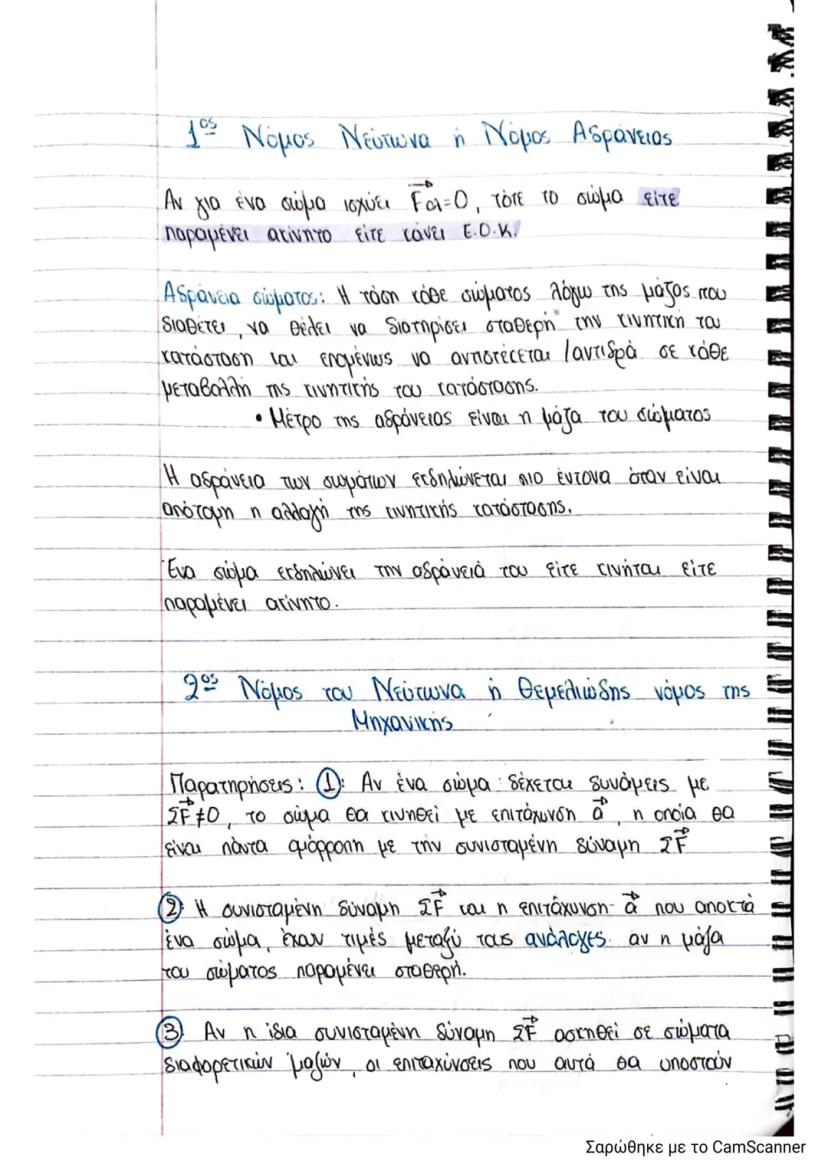 1ος Νόμος Νεύτωνα ή Νόμος Αδράνειας
Αν για ένα σώμα ισχύει F⃗ολ=0, τότε το σώμα είτε
παραμένει ακίνητο είτε κάνει Ε.Ο.Κ.
Αδράνεια σώματος: Η τάση κάθε σώματος λόγω της μάζας που
διαθέτει, να θέλει να διατηρίσει σταθερή την κινητική του
κατάσταση και επομένως να αντιστέκεται /αντιδρά σε κάθε
μεταβολλή της κινητικής του κατάστασης.
• Μέτρο της αδράνειας είναι η μάζα του σώματος
Η αδράνεια των σωμάτων εκδηλώνεται πιο έντονα όταν είναι
απότομη η αλλαγή της κινητικής κατάστασης.
Ένα σώμα εκδηλώνει την αδράνειά του είτε κινήται είτε
παραμένει ακίνητο.
2ος Νόμος του Νεύτωνα ή Θεμελιώδης νόμος της
Μηχανικής
Παρατηρήσεις: ①: Αν ένα σώμα δέχεται δυνάμεις με
ΣF⃗≠0, το σώμα θα κινηθεί με επιτάχυνση a⃗, η οποία θα
είναι πάντα ομόρροπη με την συνισταμένη δύναμη ΣF⃗
② Η συνισταμένη δύναμη ΣF⃗ και η επιτάχυνση a⃗ που αποκτά
ένα σώμα, έχουν τιμές μεταξύ τους ανάλογες αν η μάζα
του σώματος παραμένει σταθερή.
③ Αν η ίδια συνισταμένη δύναμη ΣF⃗ ασκηθεί σε σώματα
διαφορετικών μαζών, οι επιταχύνσεις που αυτά θα υποστούν
Σαρώθηκε με το CamScanner